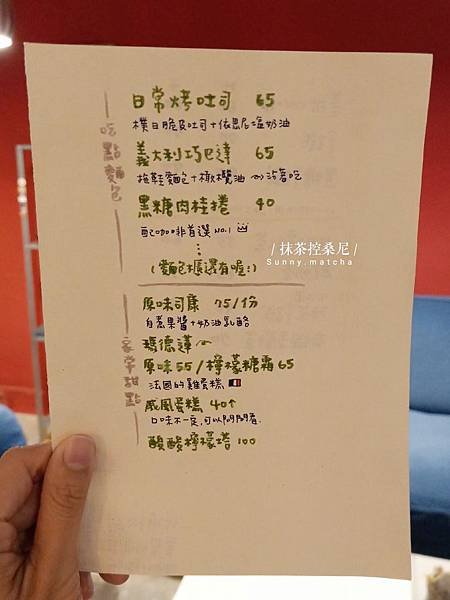 吃點麵包
日常烤吐司 65
樸日脆皮吐司+依思尼塩奶油
義大利巧巴達 65
拖鞋麵包+橄欖油 沾著吃
黑糖肉桂捲 40
配咖啡首選 NO.1
⋮
(麵包櫃還有喔:)
家常甜點
原味司康 75/份
自煮果醬+奶油乳酪
瑪德蓮
原味55/檸檬糖霜65
法國的雞蛋糕
戚風蛋糕 40↑
口味不一定,可以問問看.
酸酸檸檬塔 100
/ 抹茶控桑尼 /
Sunny.matcha